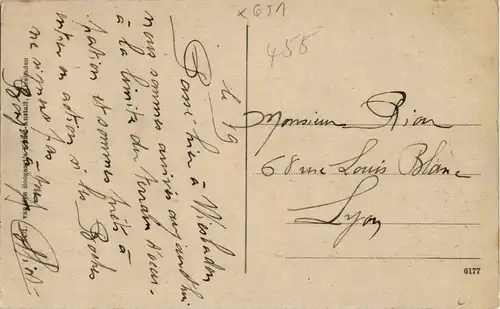 x651
455
le 19
Passé hier à Wiesbaden
nous sommes arrivés aujourd'hui
à la limite du terrain d'occu-
pation et sommes prêts à
entrer en action si les Boches
ne signent pas
Bonjour à tous
Monsieur Rion
68 rue Louis Blanc
Lyon
6177